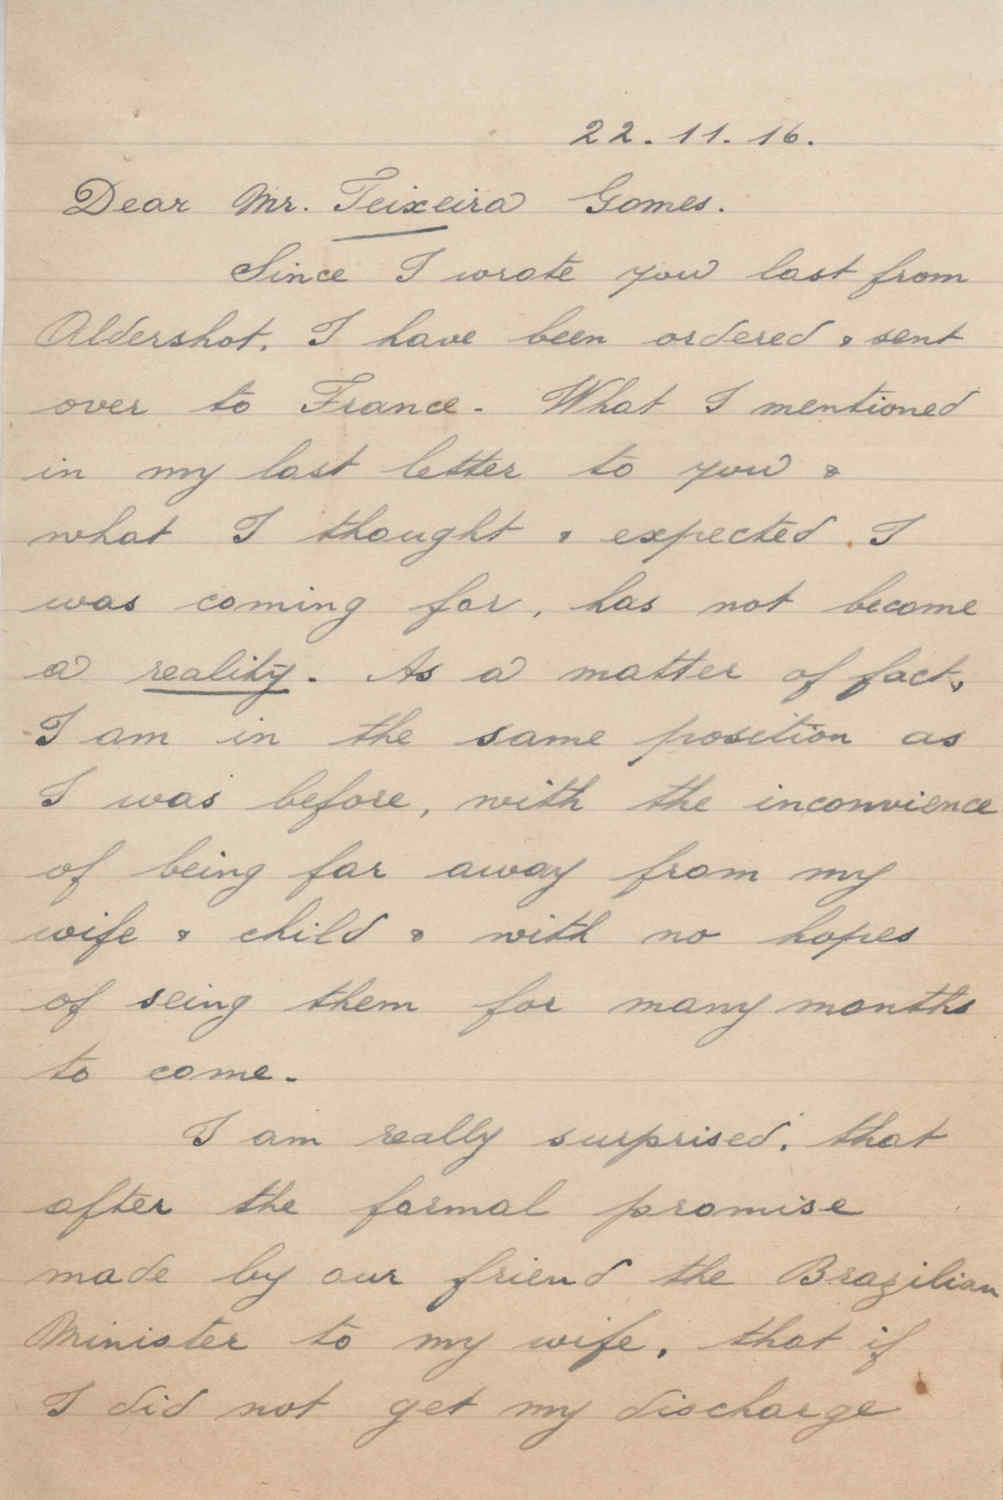 22.11.16.
Dear Mr. Teixeira Gomes.
Since I wrote you last from
Aldershot, I have been ordered & sent
over to France. What I mentioned
in my last letter to you &
what I thought & expected I
was coming for, has not become
a reality. As a matter of fact,
I am in the same position as
I was before, with the inconvience
of being far away from my
wife & child & with no hopes
of seing them for many months
to come.
I am really surprised, that
after the formal promise
made by our friend the Brazilian
Minister to my wife, that if
I did not get my discharge